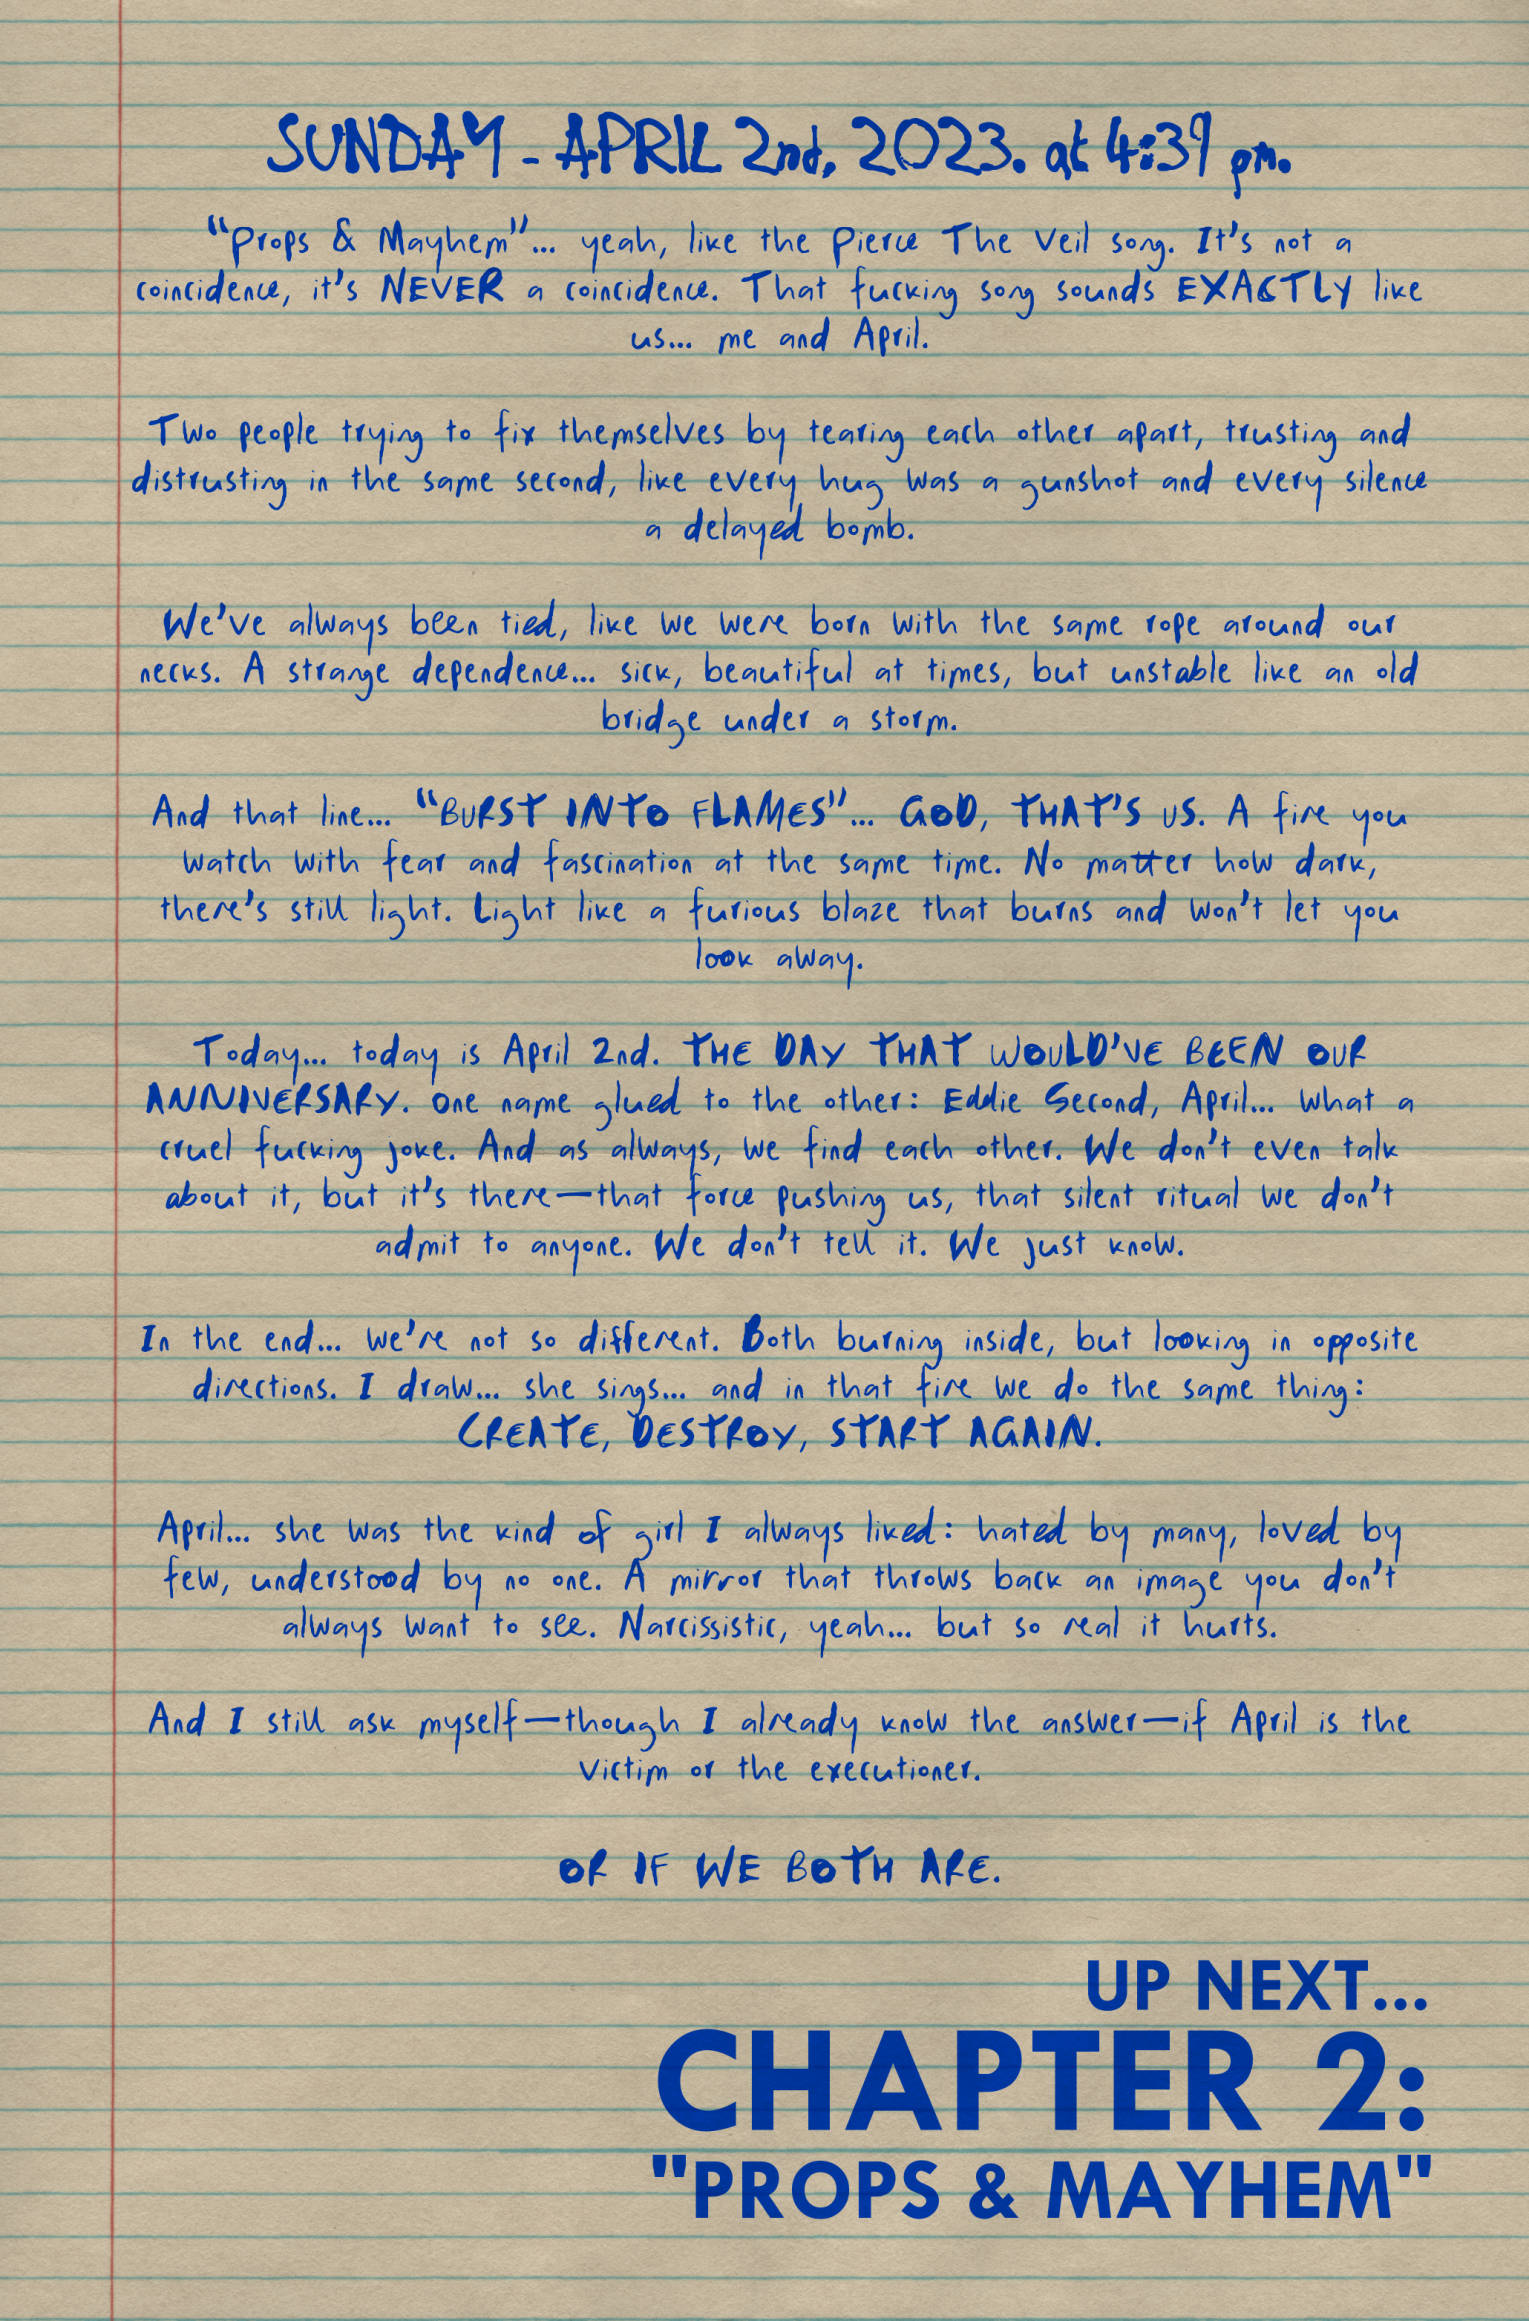 SUNDAY - APRIL 2nd, 2023. at 4:39 pm.
"Props & Mayhem"... yeah, like the Pierce The Veil song. It's not a
coincidence, it's NEVER a coincidence. That fucking song sounds EXACTLY like
us... me and April.
Two people trying to fix themselves by tearing each other apart, trusting and
distrusting in the same second, like every hug was a gunshot and every silence
a delayed bomb.
We've always been tied, like we were born with the same rope around our
necks. A strange dependence... sick, beautiful at times, but unstable like an old
bridge under a storm.
And that line... "BURST INTO FLAMES"... GOD, THAT'S US. A fire you
watch with fear and fascination at the same time. No matter how dark,
there's still light. Light like a furious blaze that burns and won't let you
look away.
Today... today is April 2nd. THE DAY THAT WOULD'VE BEEN OUR
ANNIVERSARY. One name glued to the other: Eddie Second, April... What a
cruel fucking joke. And as always, we find each other. We don't even talk
about it, but it's there—that force pushing us, that silent ritual we don't
admit to anyone. We don't tell it. We just know.
In the end... we're not so different. Both burning inside, but looking in opposite
directions. I draw... she sings... and in that fire we do the same thing:
CREATE, DESTROY, START AGAIN.
April... she was the kind of girl I always liked: hated by many, loved by
few, understood by no one. A mirror that throws back an image you don't
always want to see. Narcissistic, yeah... but so real it hurts.
And I still ask myself—though I already know the answer—if April is the
victim or the executioner.
OR IF WE BOTH ARE.
UP NEXT...
CHAPTER 2:
"PROPS & MAYHEM"